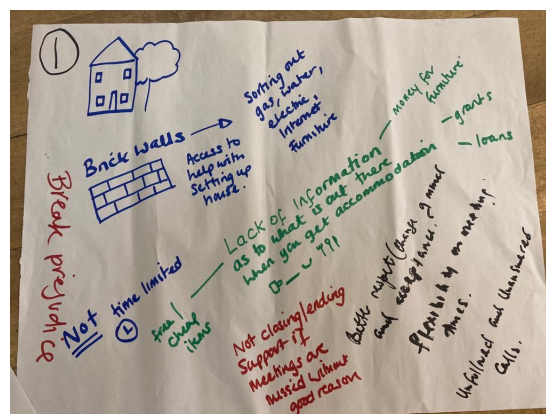 1
Brick walls
Access to
help with
setting up
house.
Sorting out
gas, water,
electric,
Internet
Furniture
Break prejudice
Not time limited
Lack of information
as to what is out there
when you get accommodation
money for
furniture
grants
loans
free/
cheap
items
Not closing/ending
Support if
Meetings are
missed without
good reason
and acceptance.
flexibility on meeting
times.
Unfollowed and Unanswered
calls.